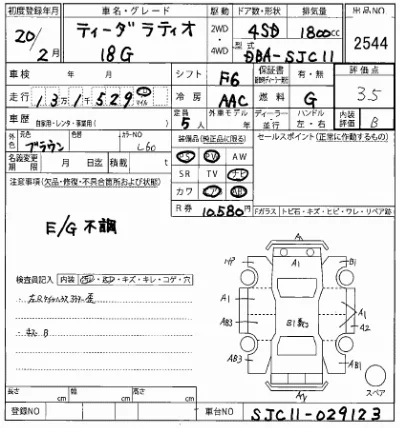 初度登録年月 車名・グレード 駆動 ドア数・形状 排気量 出品NO
20/2月 ティーダラティオ 18G 2WD・4WD 4SD 1800cc 2544
型式 DBA-SJC11
車検 年 月 シフト F6 保証書 有・無 評価点
走行 13万1千529 マイル 冷房 AAC 燃料 G 3.5
車歴 自家用・レンタ・事業用( ) 定員 5人 外車モデル 年 ディーラー 並行 ハンドル 左・右 内装評価 B
外色 元色 ブラウン カラーNO L60 装備品(純正品に限る) セールスポイント(正常に作動するもの)
PS PW AW
名義変更期限 月 日迄 積載 t SR TV ナビ
注意事項(欠品・修復・不具合箇所および状態) カワ AB
R券 10,580円 Fガラス トビ石・キズ・ヒビ・ワレ・リペア跡
E/G不調
HP A1 B1
検査員記入 内装 キズ・キレ・コゲ・穴
A1 A1
A2
キズB AB3 B1
AB3 A1
スペア
長さ cm 幅 cm 高さ cm
登録NO 車台NO SJC11-029123